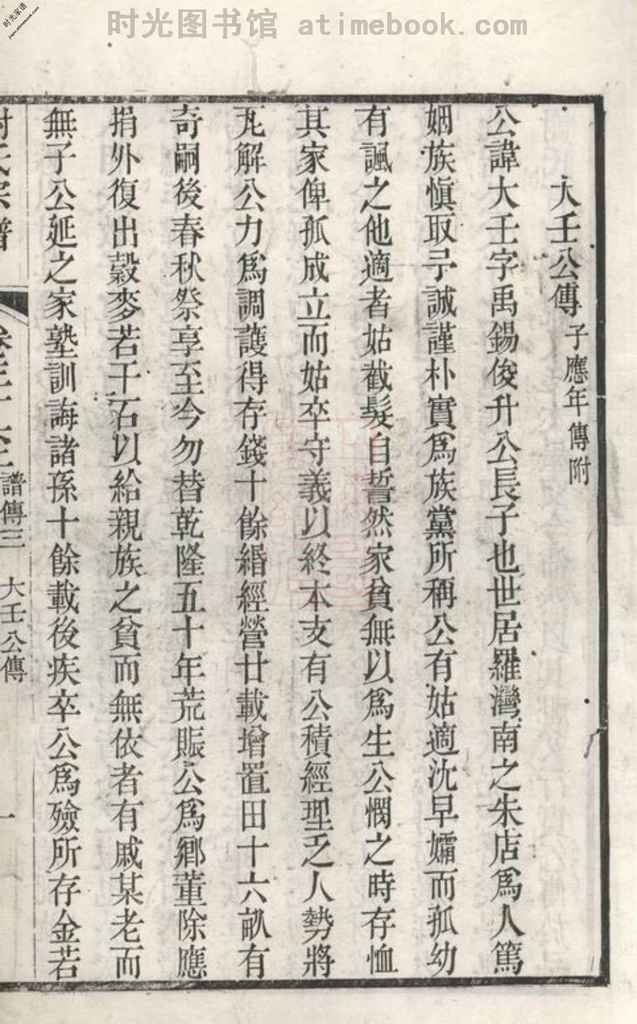 时光图书馆 atimebook.com
时光家谱
www.atimebook.com
大壬公傳 子應年傳附
公諱大壬字禹錫俊升公長子也世居羅灣南之朱店爲人篤
姻族慎取予誠謹朴實爲族黨所稱公有姑適沈早孀而孤幼
有諷之他適者姑截髮自誓然家貧無以爲生公憫之時存恤
其家俾孤成立而姑卒守義以終本支有公積經理乏人勢將
瓦解公力爲調護得存錢十餘緡經營廿載增置田十六畝有
奇嗣後春秋祭享至今勿替乾隆五十年荒賑公爲鄉董除應
捐外復出穀麥若干石以給親族之貧而無依者有戚某老而
無子公延之家塾訓誨諸孫十餘載後疾卒公爲殮所存金若
氏宗譜
譜傳三 大壬公傳 一